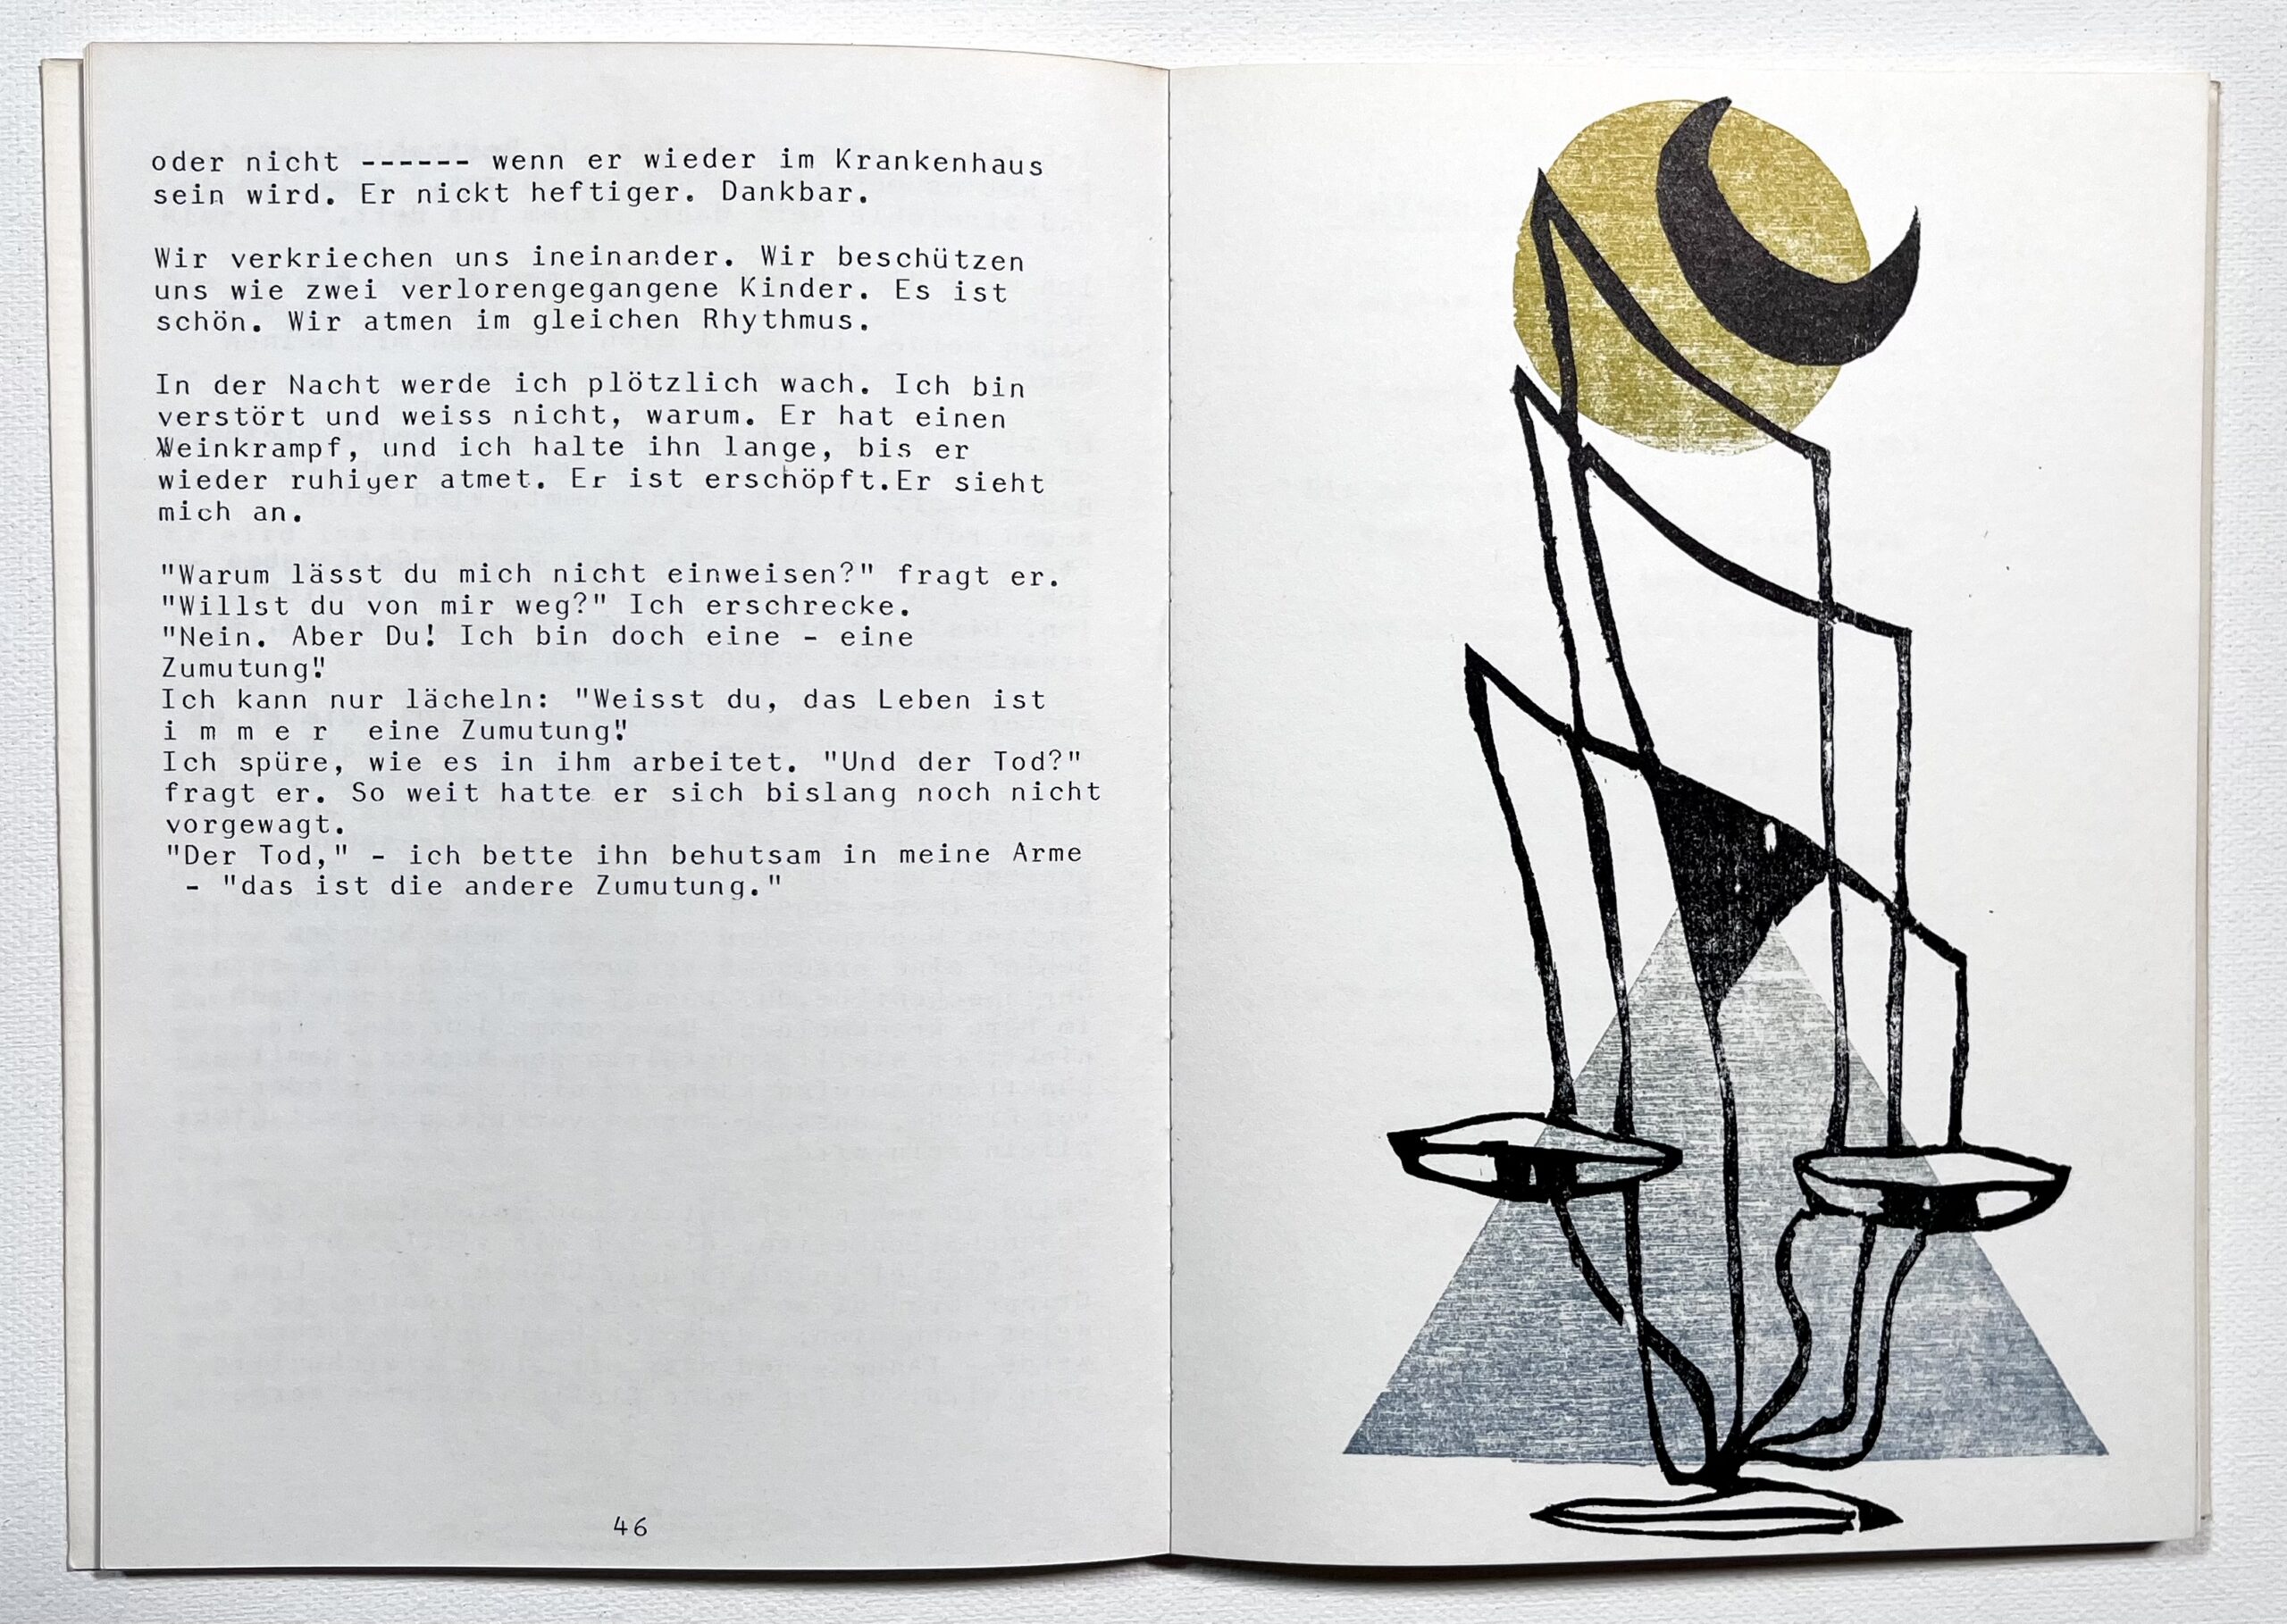 oder nicht ------ wenn er wieder im Krankenhaus
sein wird. Er nickt heftiger. Dankbar.
Wir verkriechen uns ineinander. Wir beschützen
uns wie zwei verlorengegangene Kinder. Es ist
schön. Wir atmen im gleichen Rhythmus.
In der Nacht werde ich plötzlich wach. Ich bin
verstört und weiss nicht, warum. Er hat einen
Weinkrampf, und ich halte ihn lange, bis er
wieder ruhiger atmet. Er ist erschöpft.Er sieht
mich an.
"Warum lässt du mich nicht einweisen?" fragt er.
"Willst du von mir weg?" Ich erschrecke.
"Nein. Aber Du! Ich bin doch eine - eine
Zumutung!"
Ich kann nur lächeln: "Weisst du, das Leben ist
i m m e r  eine Zumutung!"
Ich spüre, wie es in ihm arbeitet. "Und der Tod?"
fragt er. So weit hatte er sich bislang noch nicht
vorgewagt.
"Der Tod," - ich bette ihn behutsam in meine Arme
- "das ist die andere Zumutung."
46